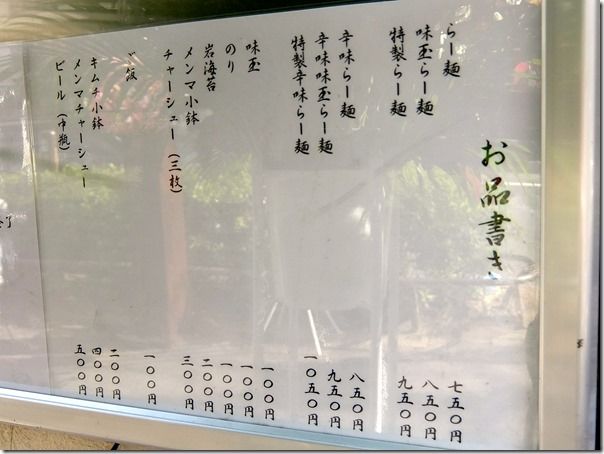 お品書き
らー麺 七五〇円
味玉らー麺 八五〇円
特製らー麺 九五〇円
辛味らー麺 八五〇円
辛味味玉らー麺 九五〇円
特製辛味らー麺 一〇五〇円
味玉 一〇〇円
のり 一〇〇円
岩海苔 一〇〇円
メンマ小鉢 二〇〇円
チャーシュー（三枚） 三〇〇円
ご飯 一〇〇円
キムチ小鉢 二〇〇円
メンマチャーシュー 四〇〇円
ビール（中瓶） 五〇〇円